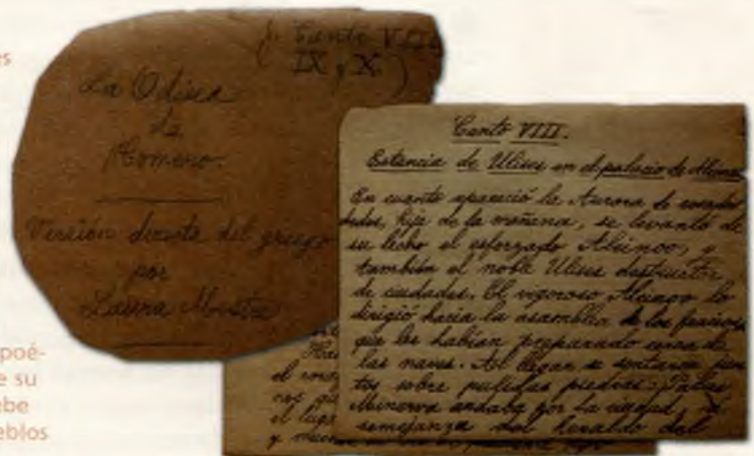 es
(J. Canto VIII,
IX y X.)
La Odisea
de
Homero.
Versión directa del griego
por
Laura Mestre
poé-
e su
ebe
eblos
Canto VIII.
Estancia de Ulises en el palacio de Alcinoo
En cuanto apareció la Aurora de rosados
dedos, hija de la mañana, se levantó de
su lecho el esforzado Alcinoo, y
también el noble Ulises destructor
de ciudades. El vigoroso Alcinoo lo
dirigió hacia la asamblea de los feacios
que les habían preparado cerca de
las naves. Al llegar se sentaron jun
tos sobre pulidas piedras; Palas
Minerva andaba por la ciudad, a
semejanza del heraldo del
el
el
y